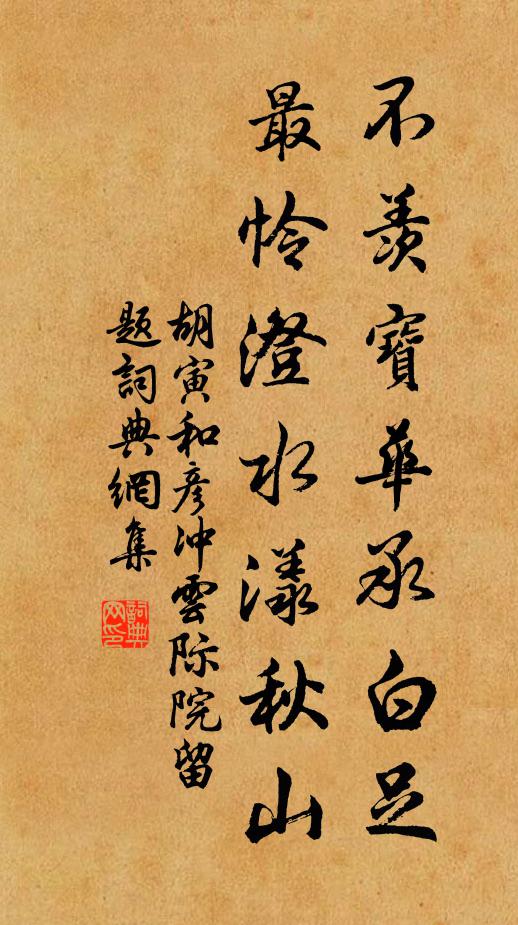 不羨寶華承白足
最憐澄水漾秋山
胡寅和彥沖雲际院留
題詞典網集
詞典网印